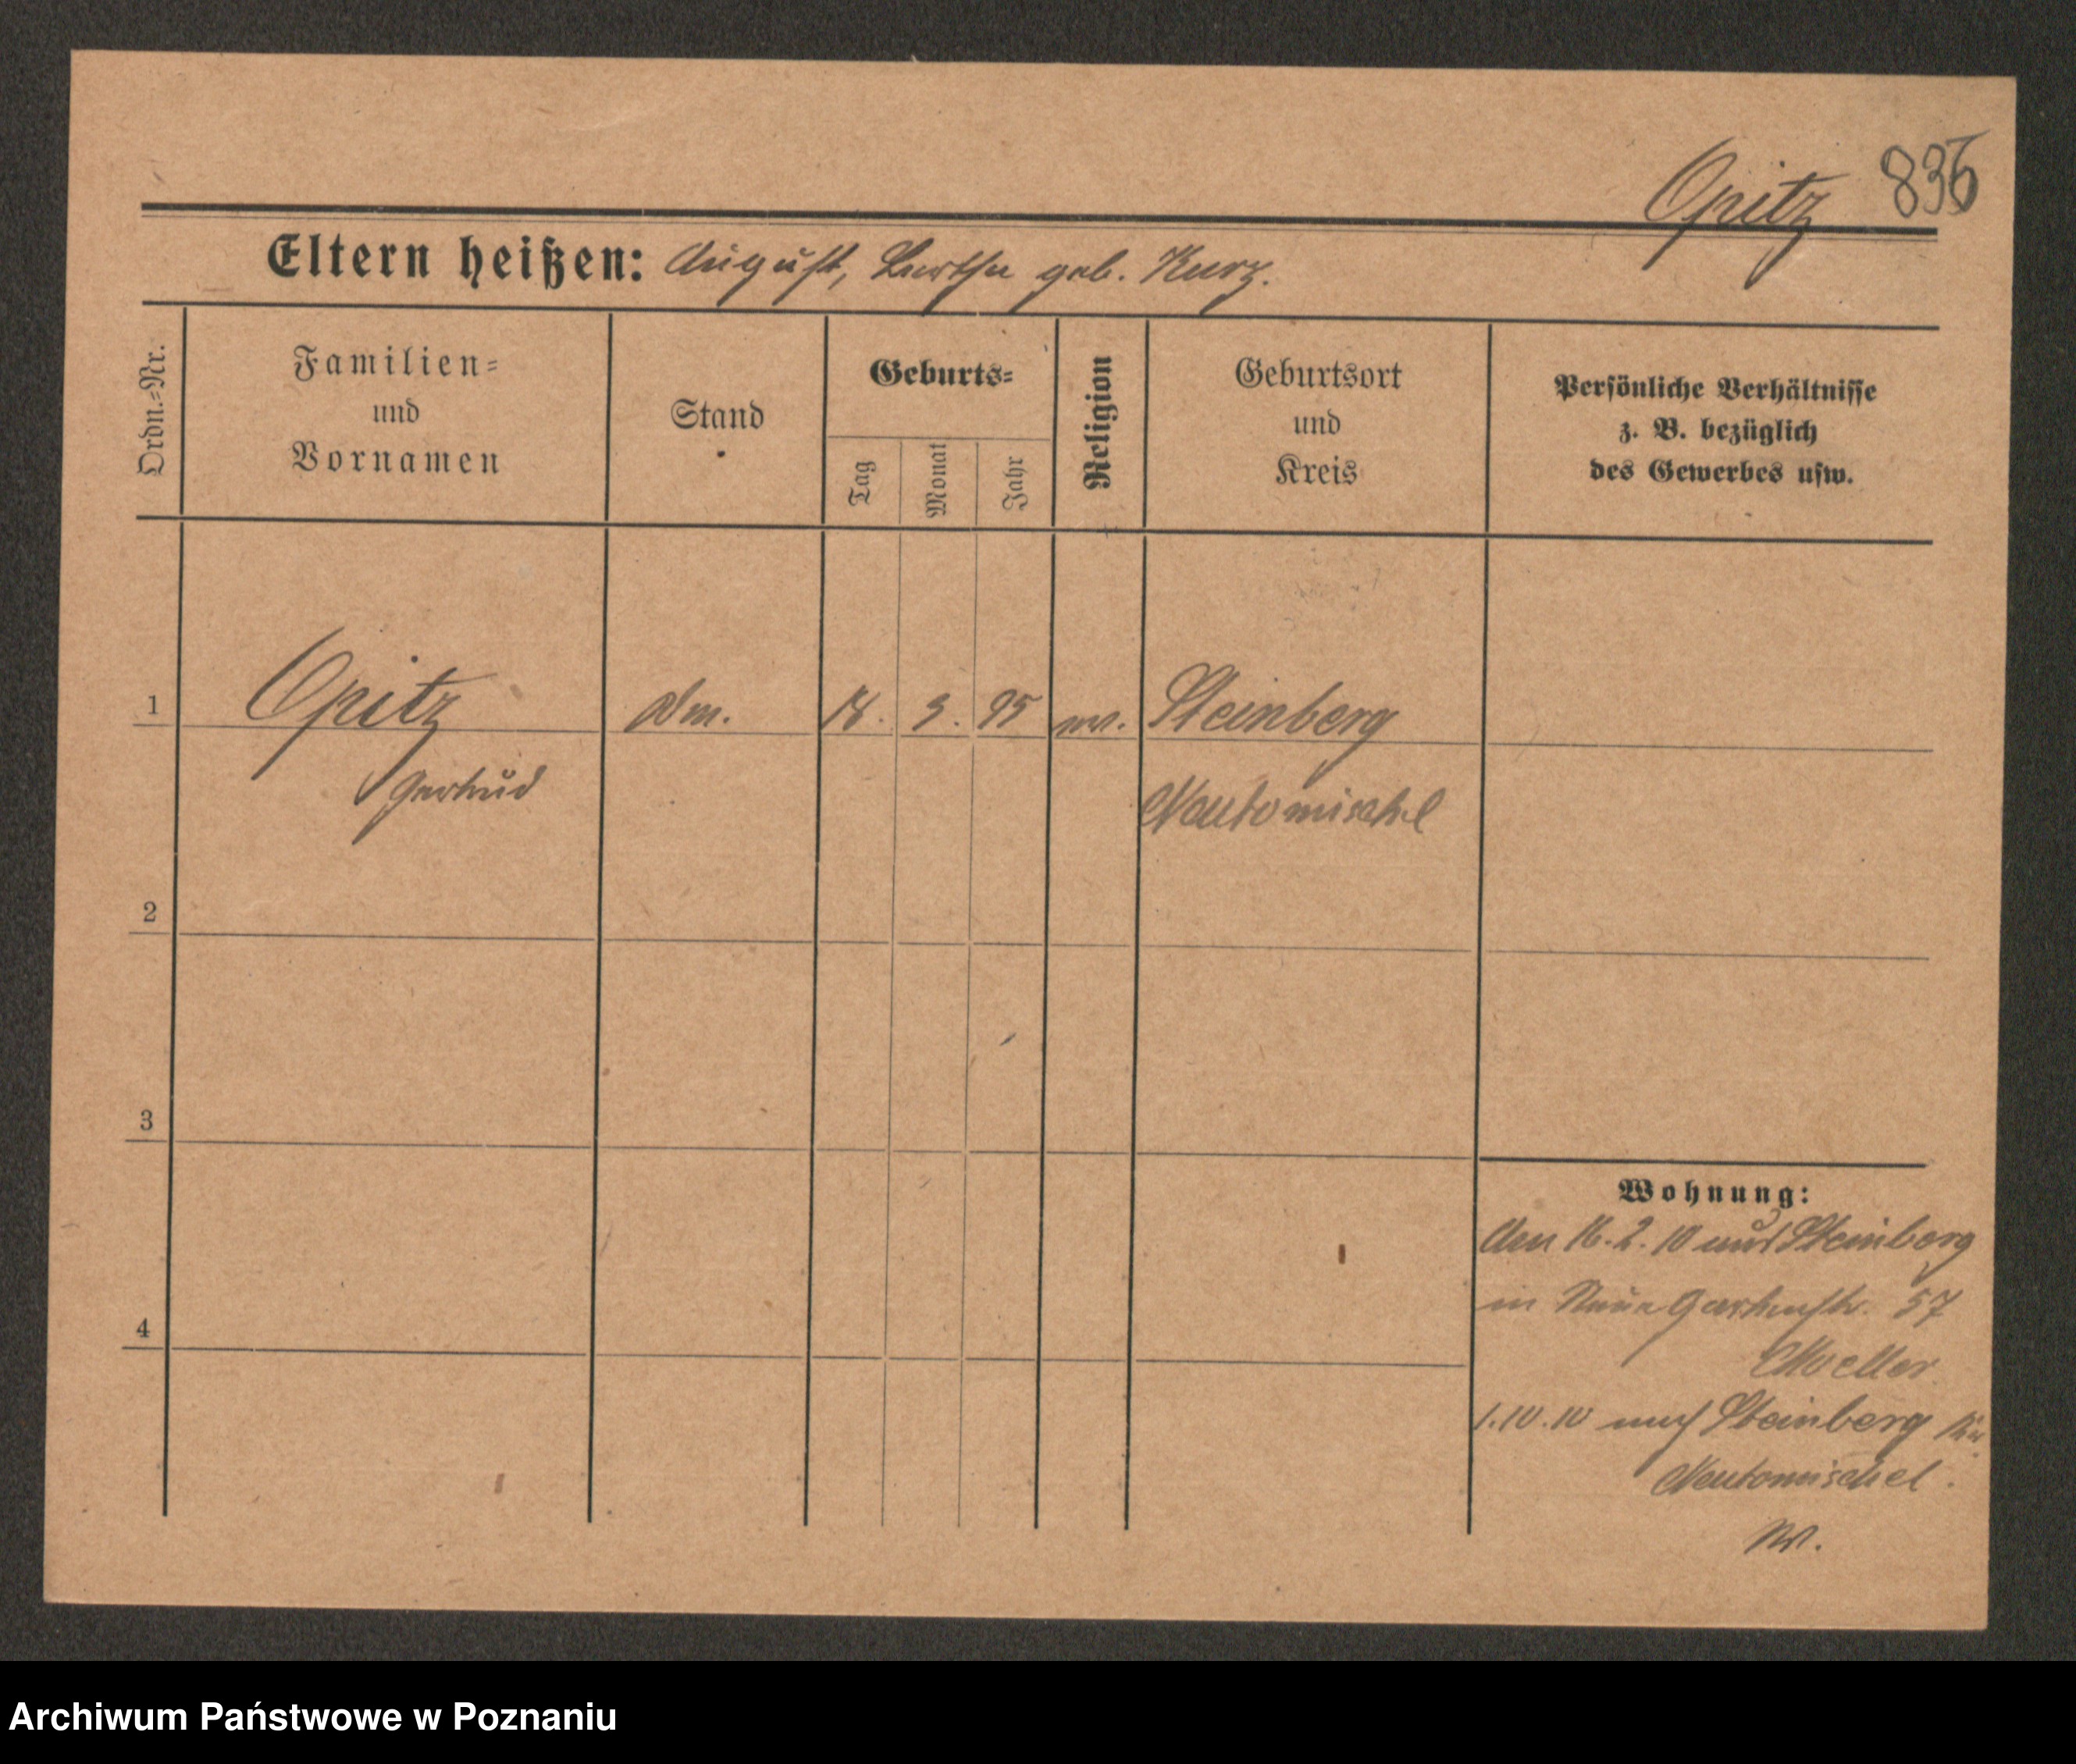 Opitz 836
Eltern heißen: August, Bertha geb. Kurz.
Ordn.=Nr.
Familien=
und
Vornamen
Stand
Geburts=
Tag
Monat
Jahr
Religion
Geburtsort
und
Kreis
Persönliche Verhältnisse
z. B. bezüglich
des Gewerbes usw.
1
Opitz
18. 3. 95
ev.
Steinberg
Gertrud
Neutomischel
2
3
4
Wohnung:
Am 16.2.10 aus Steinberg
in Neue Gartenstr. 57
Moeller
1.10.10 nach Steinberg Kr.
Neutomischel.
Archiwum Państwowe w Poznaniu